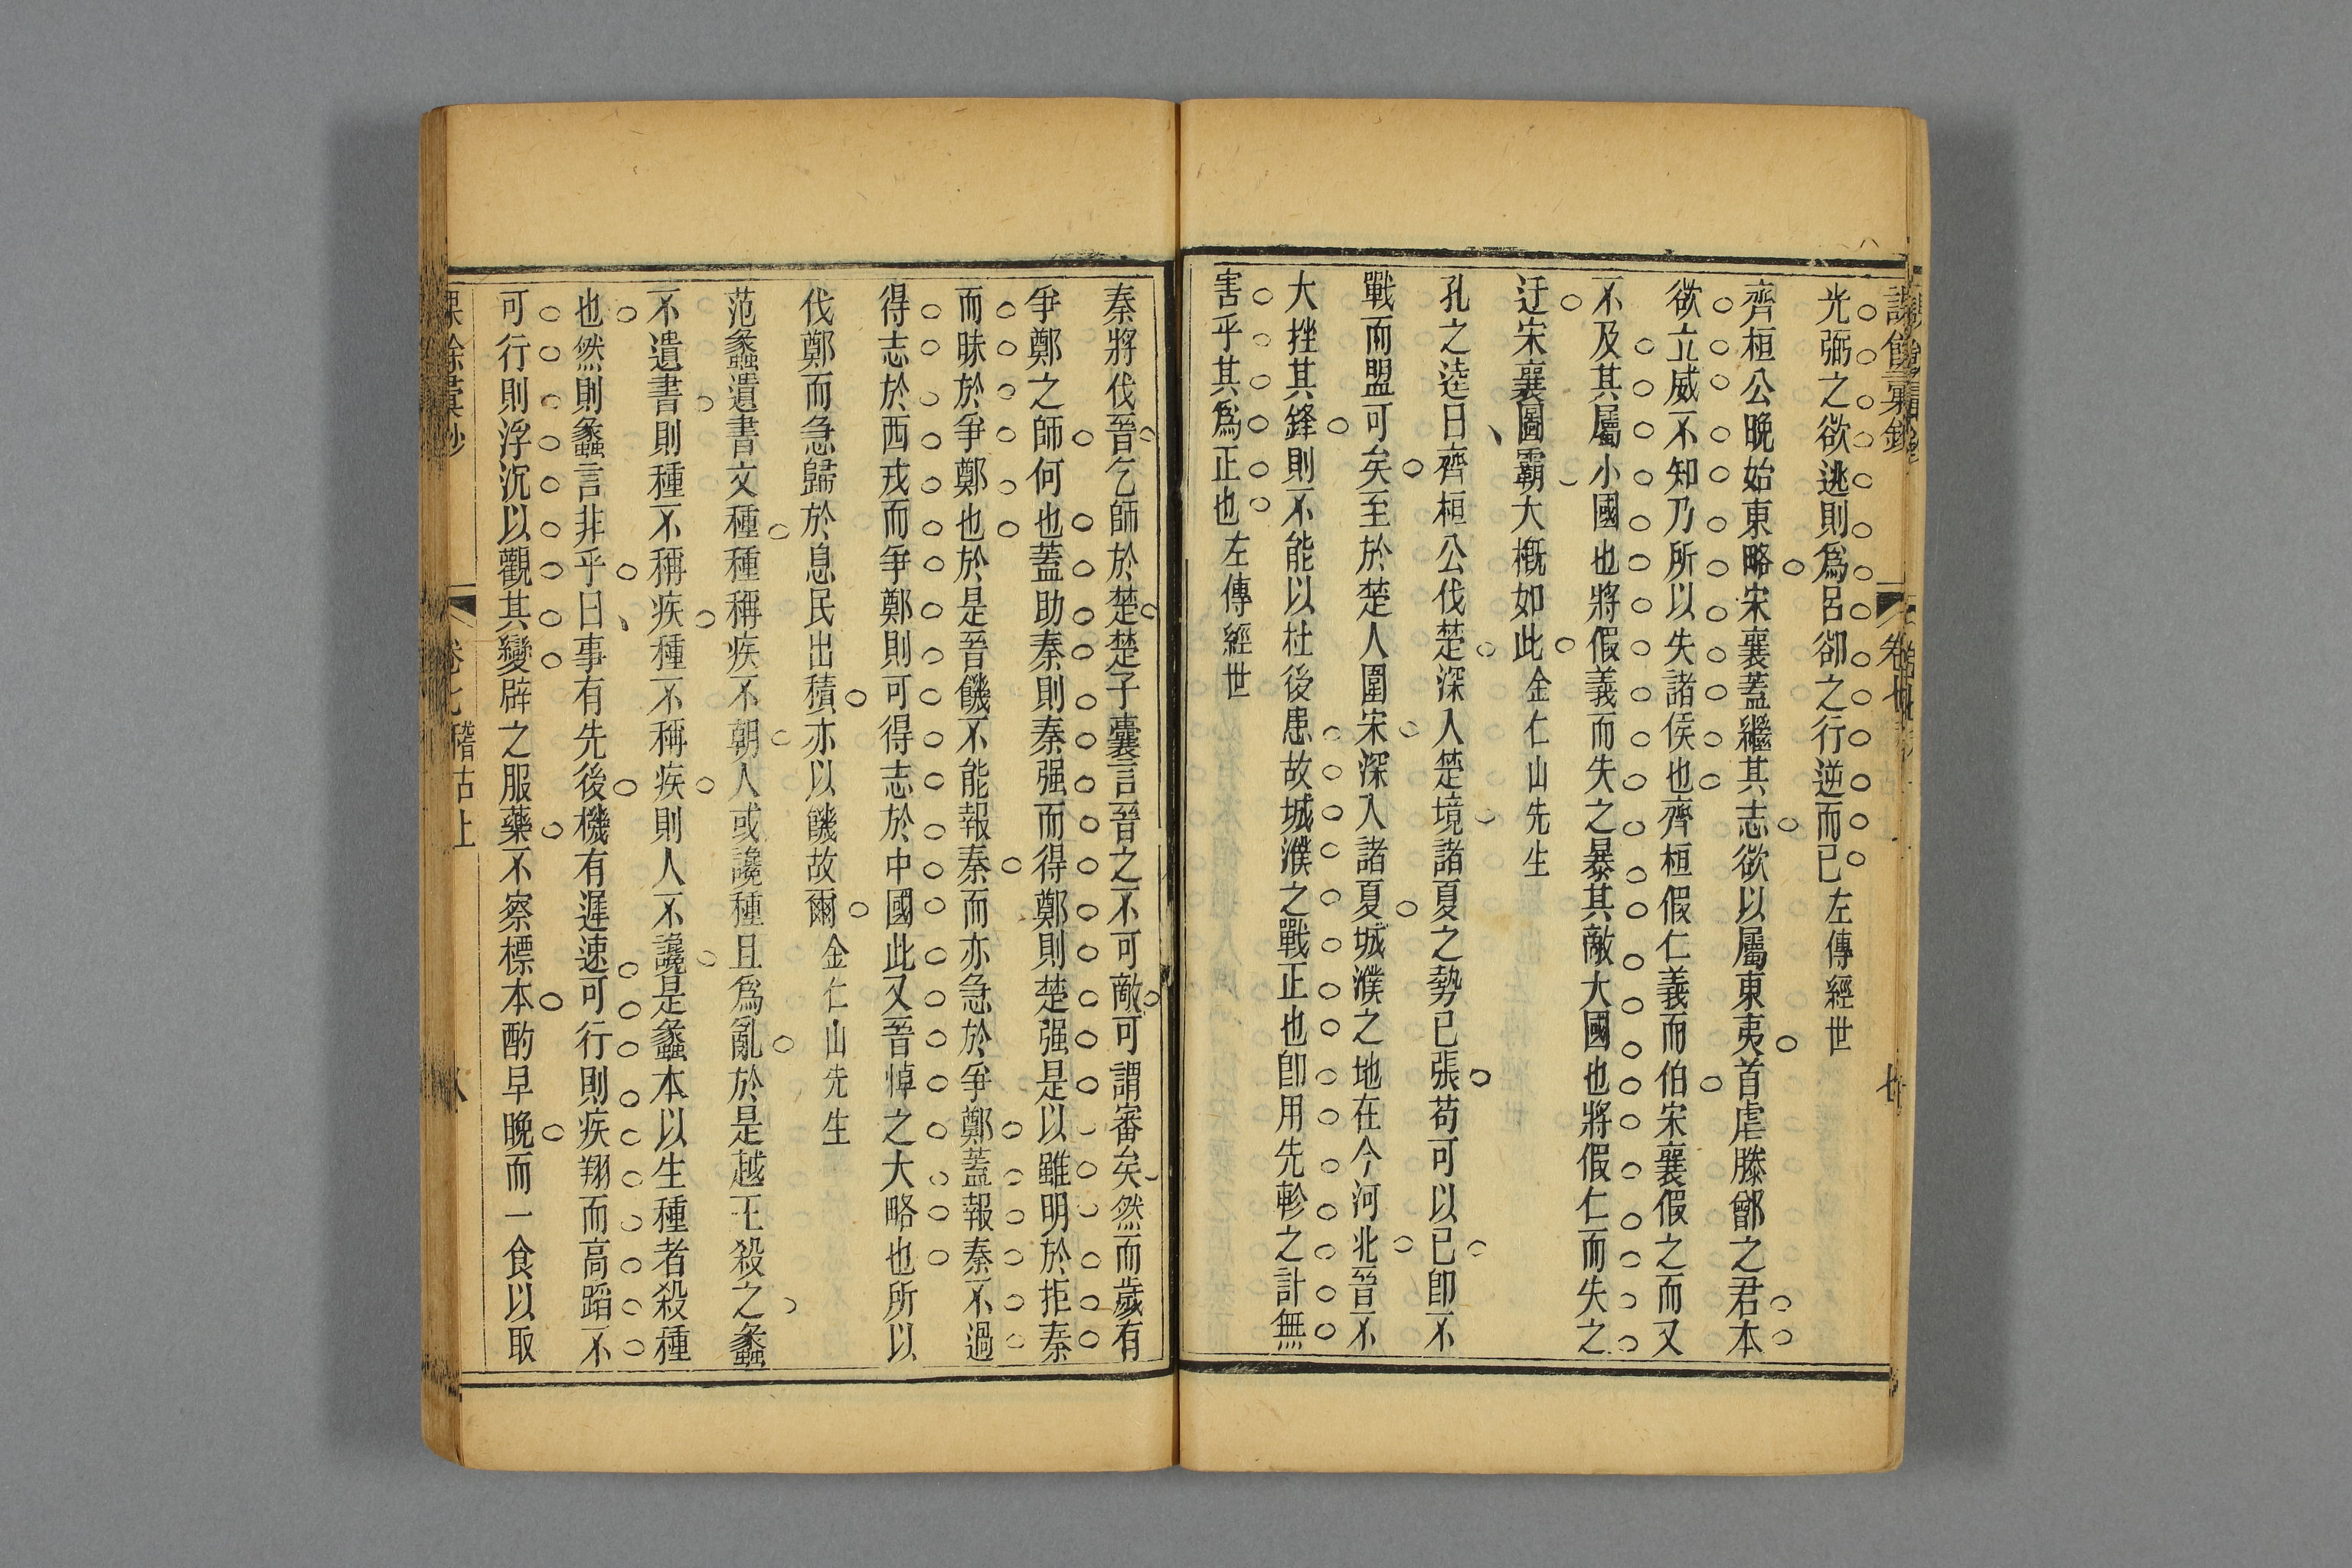 光弼之欲逃則爲呂郤之行逆而已左傳經世
齊桓公晚始東略宋襄蓋繼其志欲以屬東夷首虐滕鄫之君本
欲立威不知乃所以失諸侯也齊桓假仁義而伯宋襄假之而又
不及其屬小國也將假義而失之暴其敵大國也將假仁而失之
迂宋襄圖霸大槪如此金仁山先生
孔之逵曰齊桓公伐楚深入楚境諸夏之勢已張苟可以已卽不
戰而盟可矣至於楚人圍宋深入諸夏城濮之地在今河北晉不
大挫其鋒則不能以杜後患故城濮之戰正也卽用先軫之計無
害乎其爲正也左傳經世
秦將伐晉乞師於楚楚子囊言晉之不可敵可謂審矣然而歲有
爭鄭之師何也蓋助秦則秦强而得鄭則楚强是以雖明於拒秦
而昧於爭鄭也於是晉饑不能報秦而亦急於爭鄭蓋報秦不過
得志於西戎而爭鄭則可得志於中國此又晉悼之大略也所以
伐鄭而急歸於息民出積亦以饑故爾金仁山先生
范蠡遺書文種種稱疾不朝人或讒種且爲亂於是越王殺之蠡
不遺書則種不稱疾種不稱疾則人不讒是蠡本以生種者殺種
也然則蠡言非乎曰事有先後機有遲速可行則疾翔而高蹈不
可行則浮沉以觀其變辟之服藥不察標本酌早晚而一食以取
課餘彙鈔
卷七
稽古上